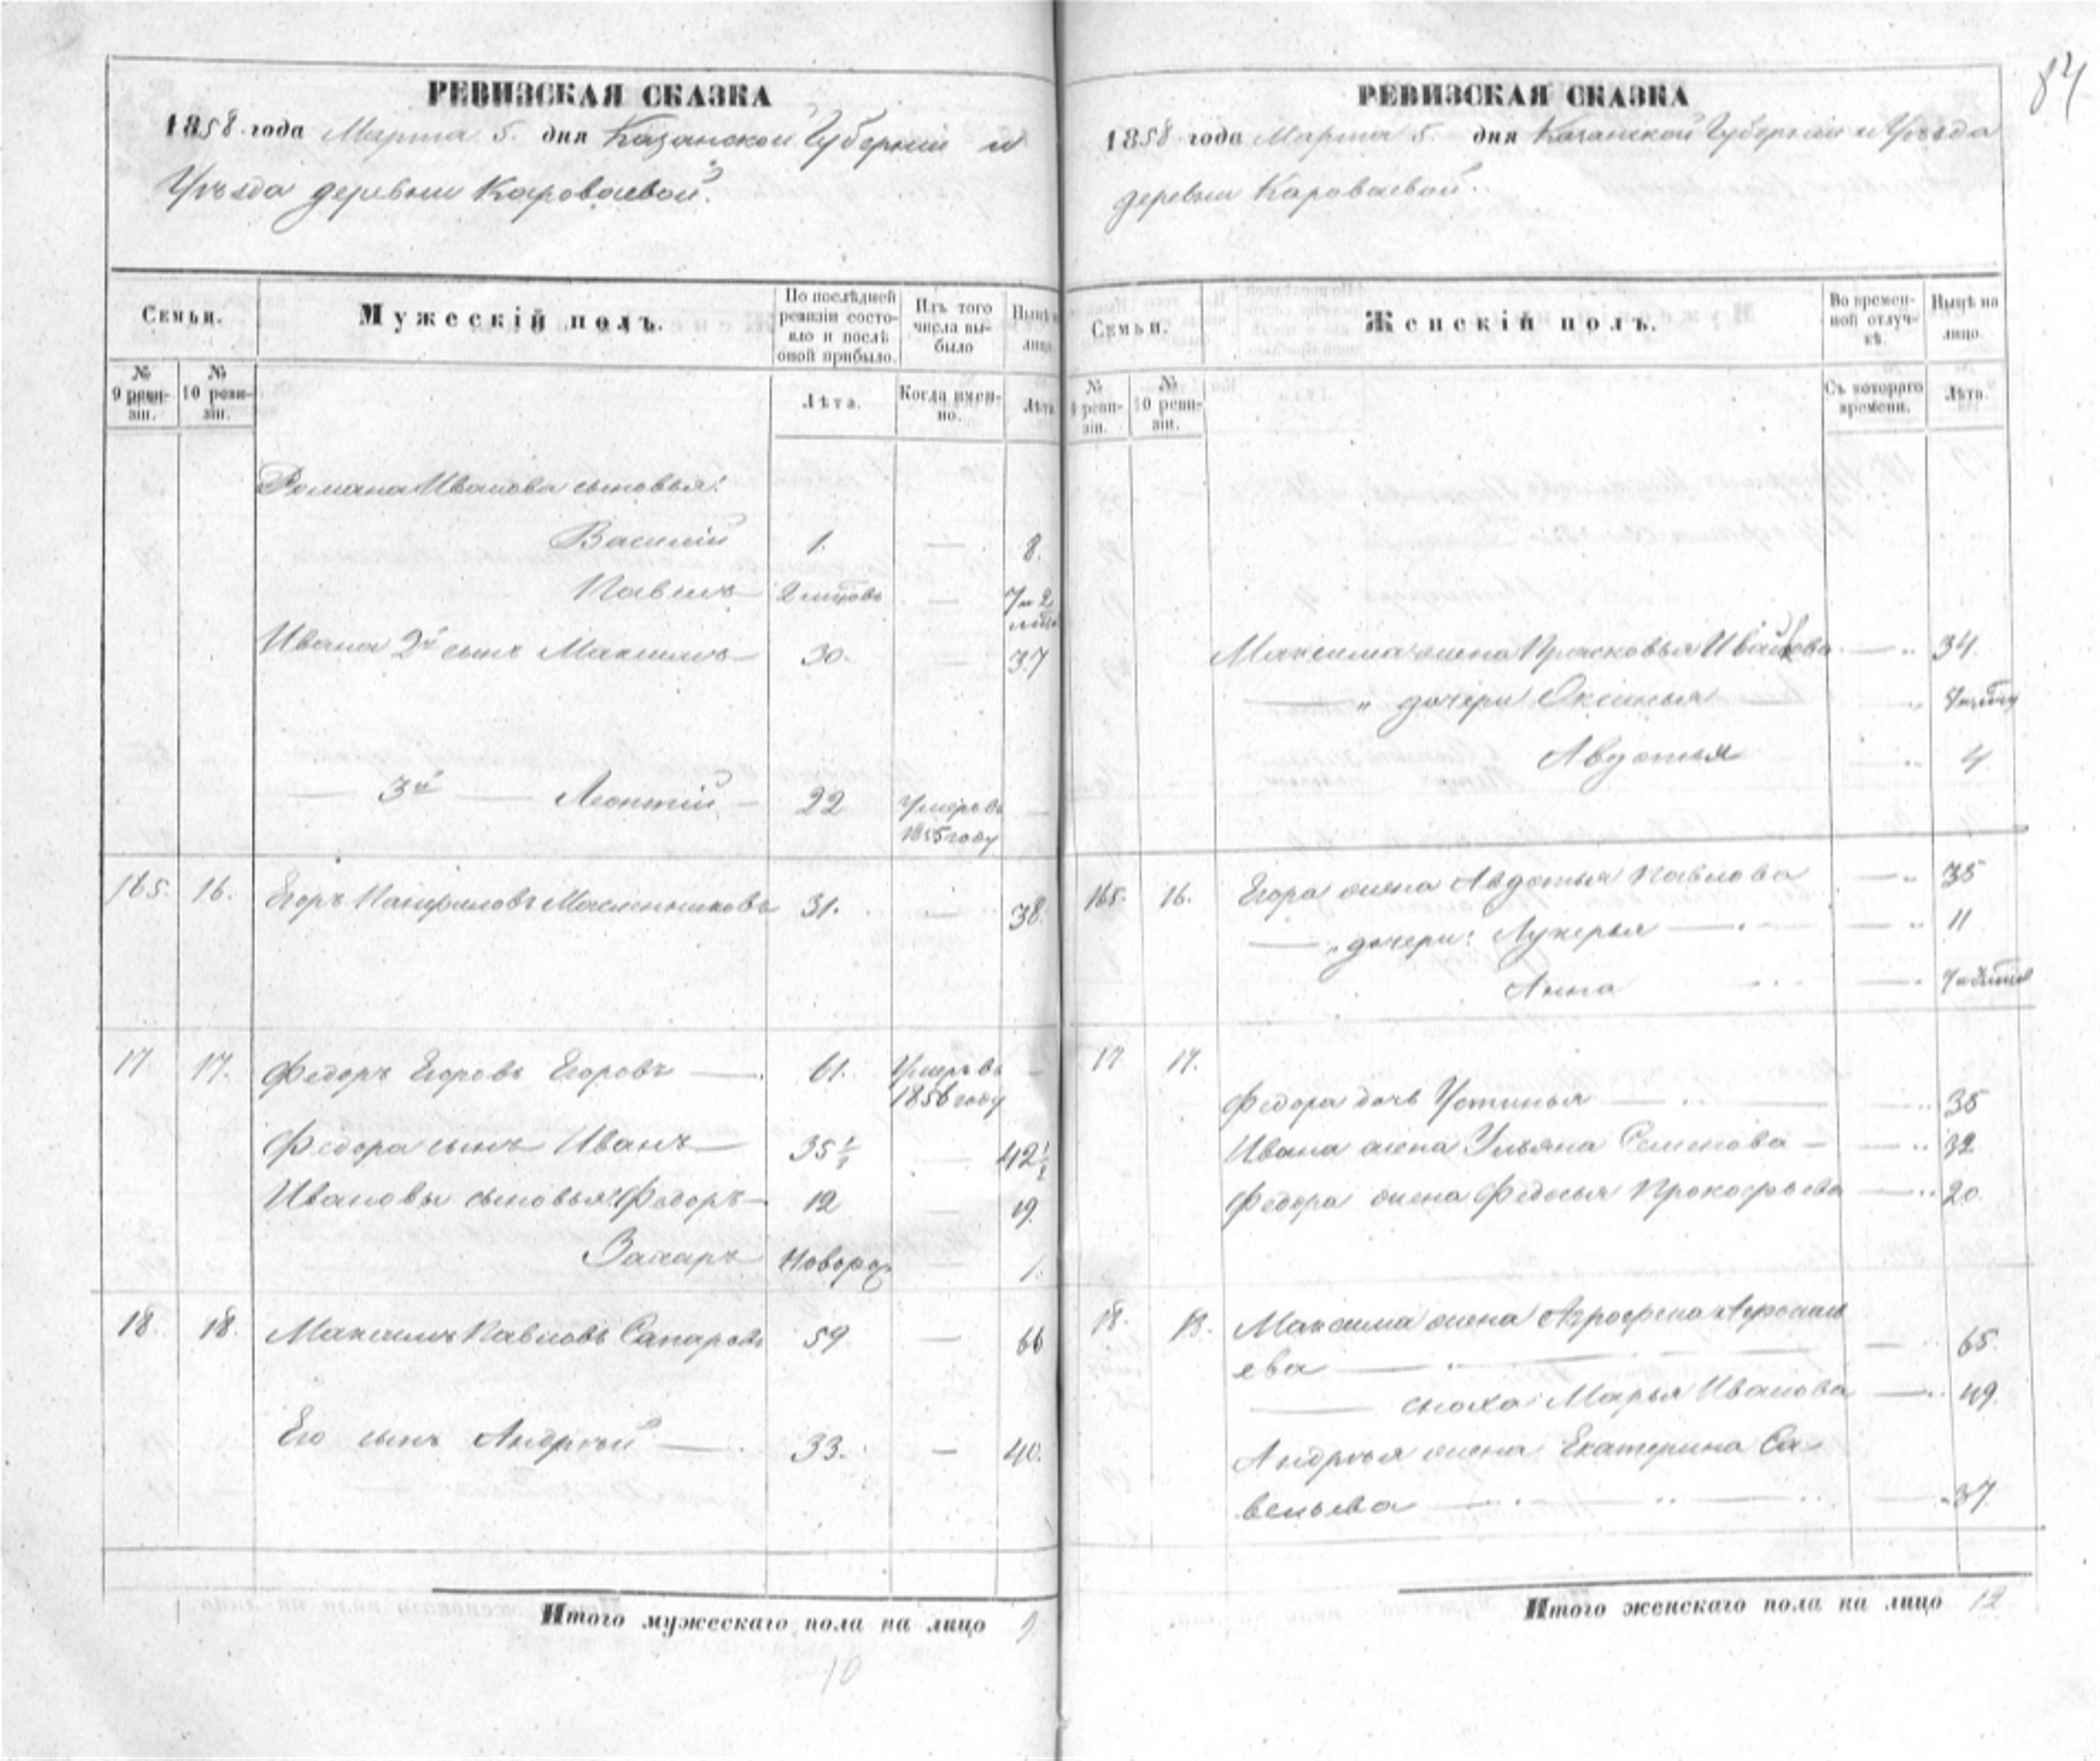 84
РЕВИЗСКАЯ СКАЗКА
1858 года Марта 5. дня Казанской Губернiи и
Уѣзда деревни Короваевой.
Семьи.
Мужескiй полъ.
По послѣдней ревизiи состояло и послѣ оной прибыло.
Изъ того числа выбыло
Нынѣ на лицо.
№ 9 ревизiи.
№ 10 ревизiи.
Лѣта.
Когда именно.
Лѣта
Романа Иванова сыновья:
Василiй 1. — 8.
Павелъ 2 мѣсцовъ — 7 и 2 мѣс.
Ивана 2й сынъ Максимъ 30. — 37
— 3й — Леонтiй — 22 Умеръ въ 1855 году —
165. 16. Егоръ Панфиловъ Масленниковъ 31. — 38.
17 17. Федоръ Егоровъ Егоровъ — 61. Умеръ въ 1856 году —
Федора сынъ Иванъ — 35 1/2 — 42 1/2
Ивановы сыновья: Федоръ — 12 — 19.
Захаръ Новорож. — 1.
18. 18. Максимъ Павловъ Сапаровъ 59 — 66
Его сынъ Андрей — 33. — 40.
Итого мужескаго пола на лицо 9
10
РЕВИЗСКАЯ СКАЗКА
1858 года Марта 5. дня Казанской Губернiи и Уѣзда
деревни Короваевой.
Семьи.
Женскiй полъ.
Во временной отлучкѣ.
Нынѣ на лицо.
№ 9 ревизiи.
№ 10 ревизiи.
Съ котораго времени.
Лѣта.
Максима жена Прасковья Иванова — 34.
— " дочери Оксинья
Авдотья 4.
165. 16. Егора жена Авдотья Павлова — 35
— " дочери: Лукерья — 11
Анна —
17 17.
Федора дочь Устинья — 35
Ивана жена Ульяна Семенова — 32
Федора жена Федосья Прокофьева — 20.
18. 18. Максима жена
ева — 65.
— сноха Марья Иванова — 49.
Андрея жена Екатерина Са-
вельева — 37.
Итого женскаго пола на лицо 12